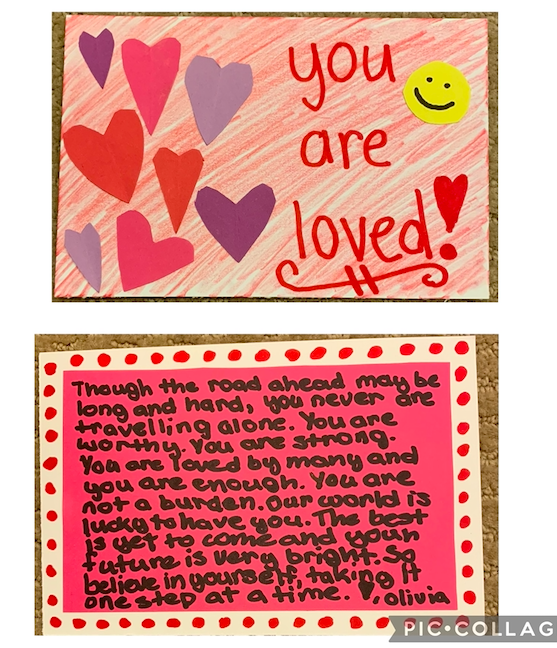 you
are
loved!
Though the road ahead may be
long and hard, you never are
travelling alone. You are
worthy. You are strong.
You are loved by many and
you are enough. You are
not a burden. Our world is
lucky to have you. The best
is yet to come and your
future is very bright. So
believe in yourself, taking it
one step at a time. ♥, Olivia
PIC•COLLAG